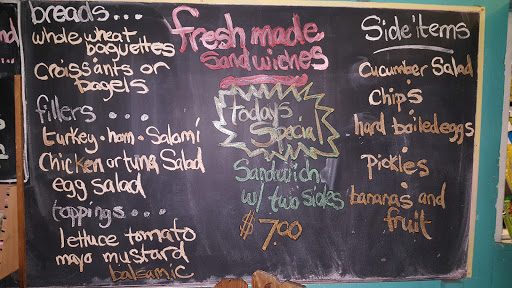 breads...
whole wheat
baguettes
croissants or
bagels
fillers...
turkey • ham • Salami
Chicken or tuna Salad
egg Salad
toppings...
lettuce tomato
mayo mustard
balsamic
fresh made
sandwiches
Todays
Special
Sandwich
w/ two sides
$7.00
Side items
Cucumber Salad
Chips
hard boiled eggs
Pickles
bananas and
fruit